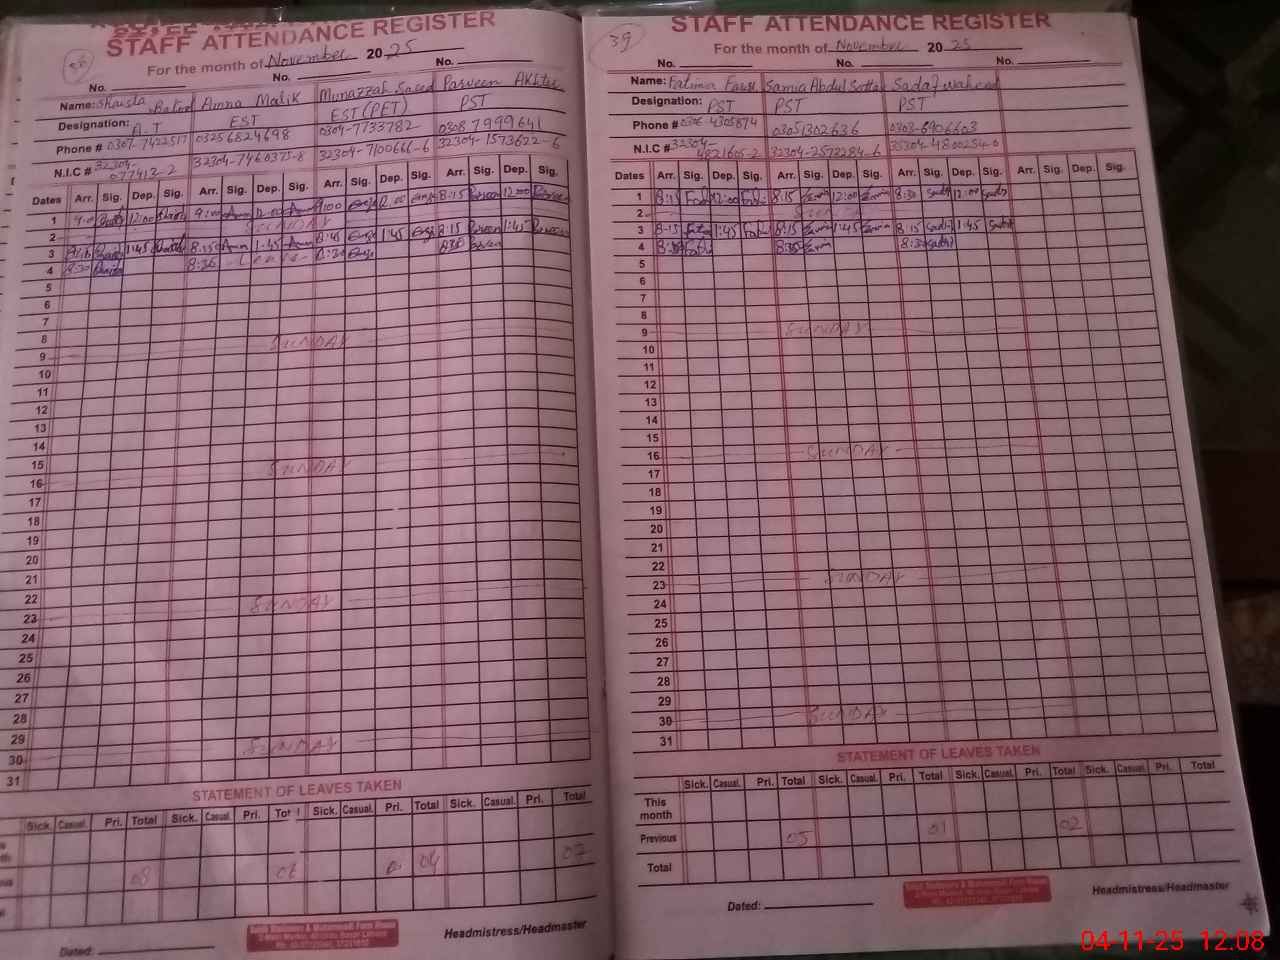 STAFF ATTENDANCE REGISTER
For the month of November 2025
No. No. No.
Name: Shaista Batool Amna Malik Munazzah Saeed Parveen Akhter
Designation: A.T EST EST (PET) PST
Phone # 0307-7422517 03256824698 0304-7733782 0308 7999641
N.I.C # 32304-077413-2 32304-7460375-8 32304-7100666-6 32304-1573622-6
Dates Arr. Sig. Dep. Sig. Arr. Sig. Dep. Sig. Arr. Sig. Dep. Sig. Arr. Sig. Dep. Sig.
1 9:00 12:00 9:00 12:00 9:00 12:00 8:15 Parveen 12:00 Parveen
2 SUNDAY
3 8:15 1:45 8:15 Amna 1:45 Amna 8:45 1:45 8:15 Parveen 1:45 Parveen
4 8:30 8:30 - Leave - 8:30 8:30 Parveen
5
6
7
8
9 SUNDAY
10
11
12
13
14
15
16 SUNDAY
17
18
19
20
21
22
23 SUNDAY
24
25
26
27
28
29
30 SUNDAY
31
STATEMENT OF LEAVES TAKEN
Sick. Casual. Pri. Total Sick. Casual. Pri. Total Sick. Casual. Pri. Total Sick. Casual. Pri. Total
08 04 07
Dated:
Headmistress/Headmaster
39
STAFF ATTENDANCE REGISTER
For the month of November 2025
No. No. No.
Name: Fatima Samia Abdul Sattar Sadaf Waheed
Designation: PST PST PST
Phone # 0306-4305874 03051302636 0303-6906603
N.I.C # 32304-4821605-2 32304-2572284-6 35304-4800254-0
Dates Arr. Sig. Dep. Sig. Arr. Sig. Dep. Sig. Arr. Sig. Dep. Sig. Arr. Sig. Dep. Sig.
1 8:15 12:00 8:15 12:00 8:30 12:00
2 SUNDAY
3 8:15 1:45 8:15 1:45 8:15 1:45
4 8:30 8:30 8:30
5
6
7
8
9 SUNDAY
10
11
12
13
14
15
16 SUNDAY
17
18
19
20
21
22
23 SUNDAY
24
25
26
27
28
29
30 SUNDAY
31
STATEMENT OF LEAVES TAKEN
Sick. Casual. Pri. Total Sick. Casual. Pri. Total Sick. Casual. Pri. Total Sick. Casual. Pri. Total
This month
Previous 05 01 02
Total
Dated:
Headmistress/Headmaster
04-11-25 12:08